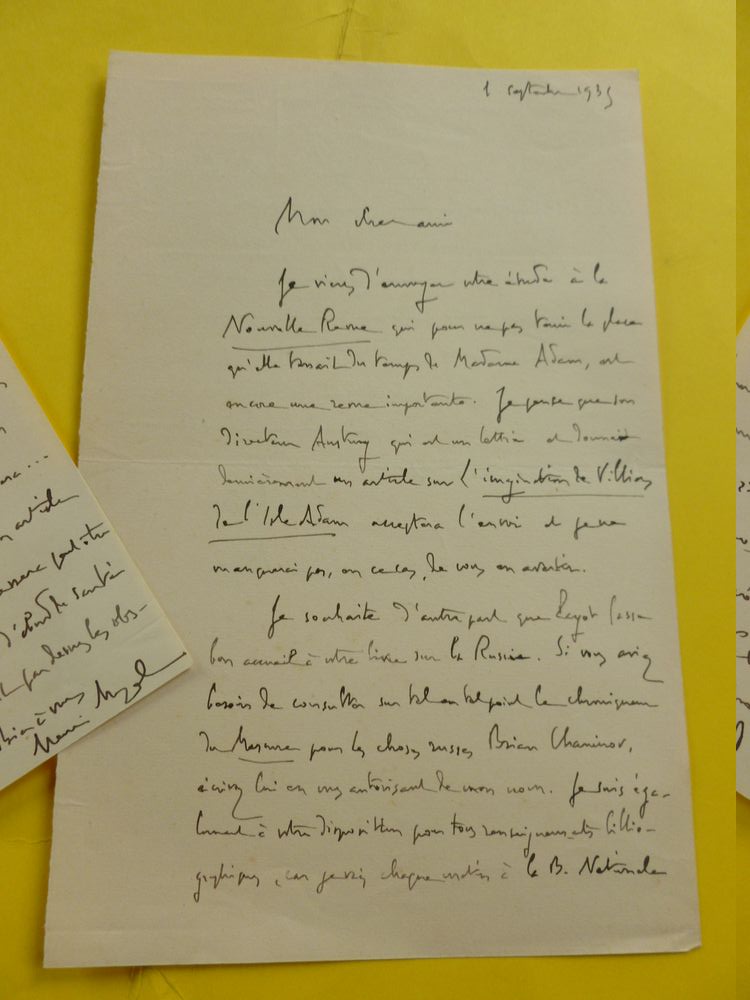 1 septembre 1935
Mon cher ami
Je viens d'envoyer votre étude à la
Nouvelle Revue qui pour ne pas tenir la place
qu'elle tenait du temps de Madame Adam, est
encore une revue importante. Je pense que son
Directeur qui est un lettré et donnait
dernièrement un article sur l'imagination de Villiers
de l'Isle Adam acceptera l'envoi et je ne
manquerai pas, en ce cas, de vous en avertir.
Je souhaite d'autre part que Payot fasse
bon accueil à votre livre sur la Russie. Si vous aviez
besoin de consulter sur tel ou tel point le chroniqueur
du Mercure pour les choses russes Brian Chaninov,
écrivez lui en vous autorisant de mon nom. Je suis éga-
lement à votre disposition pour tous renseignements biblio-
graphiques, car je vais chaque matin à la B. Nationale
article
peut être
d'ici de santé
par dessus les obs-
Bien à vous